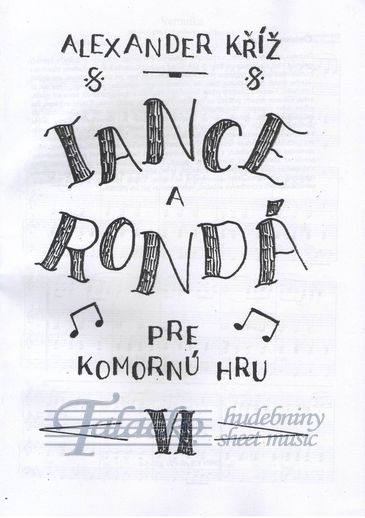 ALEXANDER KŘÍŽ
TANCE
A
RONDÁ
PRE
KOMORNÚ HRU
VI
Talacko hudebniny
sheet music